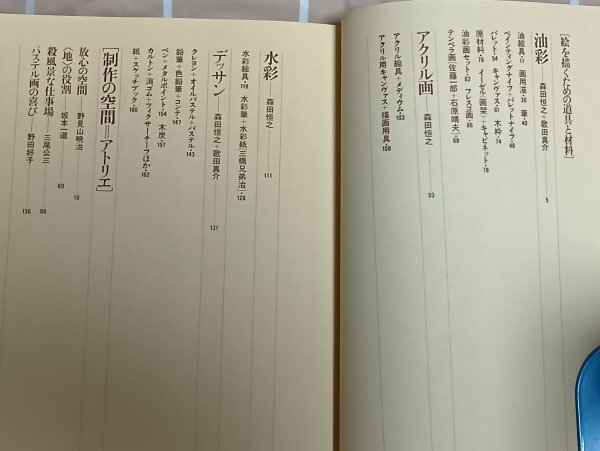 [絵を描くための道具と材料]
油彩――森田恒之＋歌田真介 5
油絵具・11 画用液・30 筆・40
ペインティングナイフ＋パレットナイフ・48
パレット・54 キャンヴァス・61 木枠・74
原材料・76 イーゼル・画架＋キャビネット・78
油彩画セット・82 フレスコ画・86
テンペラ画[佐藤一郎＋石原靖夫]・89
アクリル画――森田恒之 93
アクリル絵具＋メディウム・103
アクリル用キャンヴァス＋描画用具・109
水彩――森田恒之 111
水彩絵具・119 水彩筆＋水彩紙[三橋兄弟治]・128
デッサン――森田恒之＋歌田真介 131
クレヨン＋オイルパステル＋パステル・143
鉛筆＋色鉛筆＋コンテ・147
ペン＋メタルポイント・154 木炭・157
カルトン＋消ゴム＋フィクサチーフほか・162
紙＋スケッチブック・166
[制作の空間＝アトリエ]
放心の空間――野見山暁治 10
〈地〉の役割――坂本一道 60
殺風景な仕事場――三尾公三 98
パステル画の喜び――野田好子 136